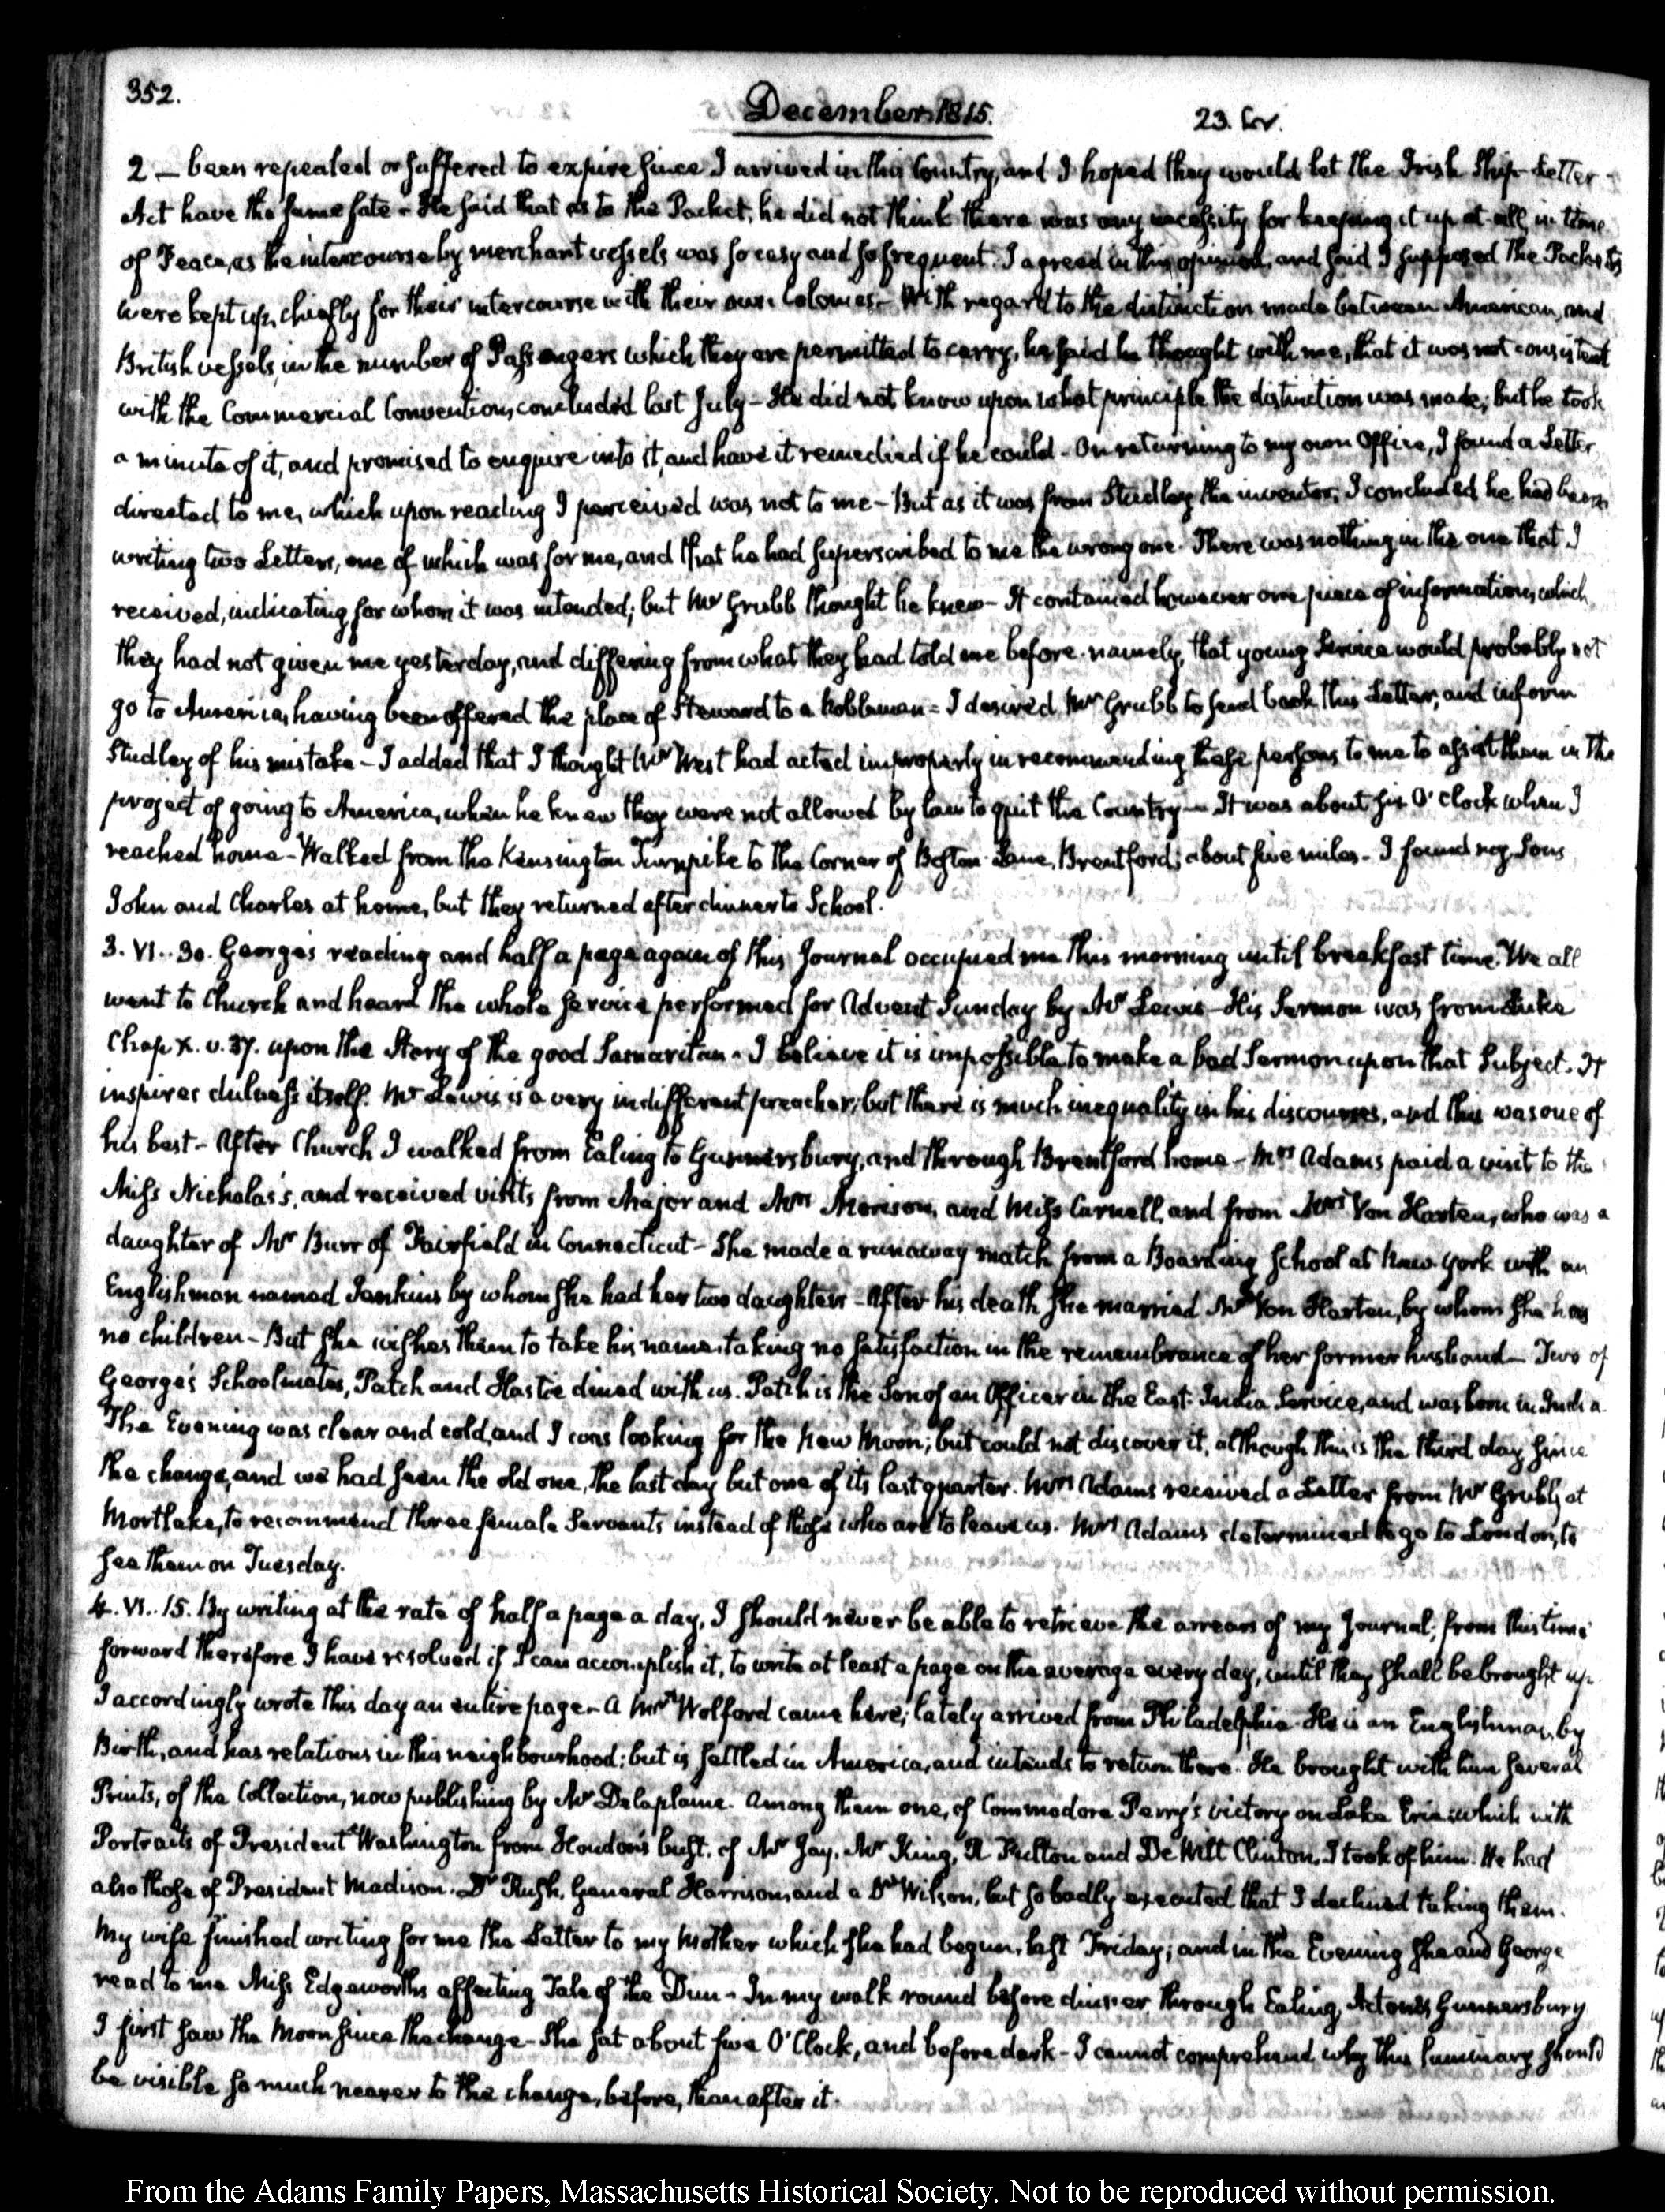 352.
December 1815.
23. Lv.
2 — been repealed or suffered to expire since I arrived in this Country, and I hoped they would let the Irish Ship-Letter
Act have the same fate – He said that as to the Packet, he did not think there was any necessity for keeping it up at all in time
of Peace, as the intercourse by merchant vessels was so easy and so frequent. I agreed in this opinion, and said I supposed the Packets
were kept up, chiefly for their intercourse with their own Colonies – With regard to the distinction made between American, and
British vessels, in the number of Passengers which they are permitted to carry, he said he thought with me, that it was not consistent
with the Commercial Convention, concluded last July – He did not know upon what principle the distinction was made; but he took
a minute of it, and promised to enquire into it, and have it remedied if he could – On returning to my own Office, I found a Letter
directed to me, which upon reading I perceived was not to me – But as it was from Studley the inventor, I concluded he had been
writing two Letters, one of which was for me, and that he had superscribed to me the wrong one. There was nothing in the one that I
received, indicating for whom it was intended; but Mr Grubb thought he knew – It contained however one piece of information, which
they had not given me yesterday, and differing from what they had told me before. namely, that young would probably not
go to America, having been offered the place of Steward to a Nobleman – I desired Mr Grubb to send back this Letter, and inform
Studley of his mistake – I added that I thought Mr West had acted improperly in recommending these persons to me to assist them in the
project of going to America, when he knew they were not allowed by law to quit the Country – It was about six O'Clock when I
reached home – Walked from the Kensington Turnpike to the Corner of Boston Lane, Brentford; about five miles – I found my Sons
John and Charles at home, but they returned after dinner to School.
3. VI..30. George's reading and half a page again of this Journal occupied me this morning until breakfast time. We all
went to Church and heard the whole service performed for Advent Sunday by Mr Lewis – His Sermon was from Luke
Chap X. v. 37. upon the Story of the good Samaritan – I believe it is impossible to make a bad Sermon upon that Subject. It
inspires dulness itself. Mr Lewis is a very indifferent preacher; but there is much inequality in his discourses, and this was one of
his best – After Church I walked from Ealing to Gunnersbury, and through Brentford home – Mrs Adams paid a visit to the
Miss Nicholas's, and received visits from Major and Mrs Morison, and Miss Carnell, and from Mrs Von Harten, who was a
daughter of Mr Burr of Fairfield in Connecticut – She made a runaway match from a Boarding School at New-York with an
Englishman named Jenkins by whom she had her two daughters – After his death she married Mr Von Harten, by whom she has
no children – But she wishes them to take his name, taking no satisfaction in the remembrance of her former husband – Two of
George's Schoolmates, Patch and Hastie dined with us. Patch is the Son of an Officer in the East-India Service, and was born in India.
The Evening was clear and cold, and I was looking for the New Moon; but could not discover it, although this is the third day since
the change, and we had seen the old one, the last day but one of its last quarter. Mrs Adams received a Letter from Mr Grubb, at
Mortlake, to recommend three female Servants instead of those who are to leave us. Mrs Adams determined to go to London, to
see them on Tuesday.
4. VI..15. By writing at the rate of half a page a day, I should never be able to retrieve the arrears of my Journal; from this time
forward therefore I have resolved if I can accomplish it, to write at least a page on the average every day, until they shall be brought up.
I accordingly wrote this day an entire page – A Mr Wolford came here; lately arrived from Philadelphia. He is an Englishman by
Birth, and has relations in this neighbourhood; but is settled in America, and intends to return there. He brought with him several
Prints, of the Collection, now publishing by Mr Delaplaine. Among them one, of Commodore Perry's victory on Lake Erie, which with
Portraits of President Washington from Houdon's bust, of Mr Jay, Mr King, R Fulton and De Witt Clinton, I took of him. He had
also those of President Madison, Dr Rush, General Harrison, and a Dr Wilson, but so badly executed that I declined taking them.
My wife finished writing for me the Letter to my Mother which she had begun, last Friday; and in the Evening she and George
read to me Miss Edgeworth's affecting Tale of the Dun – In my walk round before dinner through Ealing, Acton & Gunnersbury
I first saw the Moon since the change – She sat about five O'Clock, and before dark – I cannot comprehend why this luminary should
be visible so much nearer to the change, before, than after it.
From the Adams Family Papers, Massachusetts Historical Society. Not to be reproduced without permission.